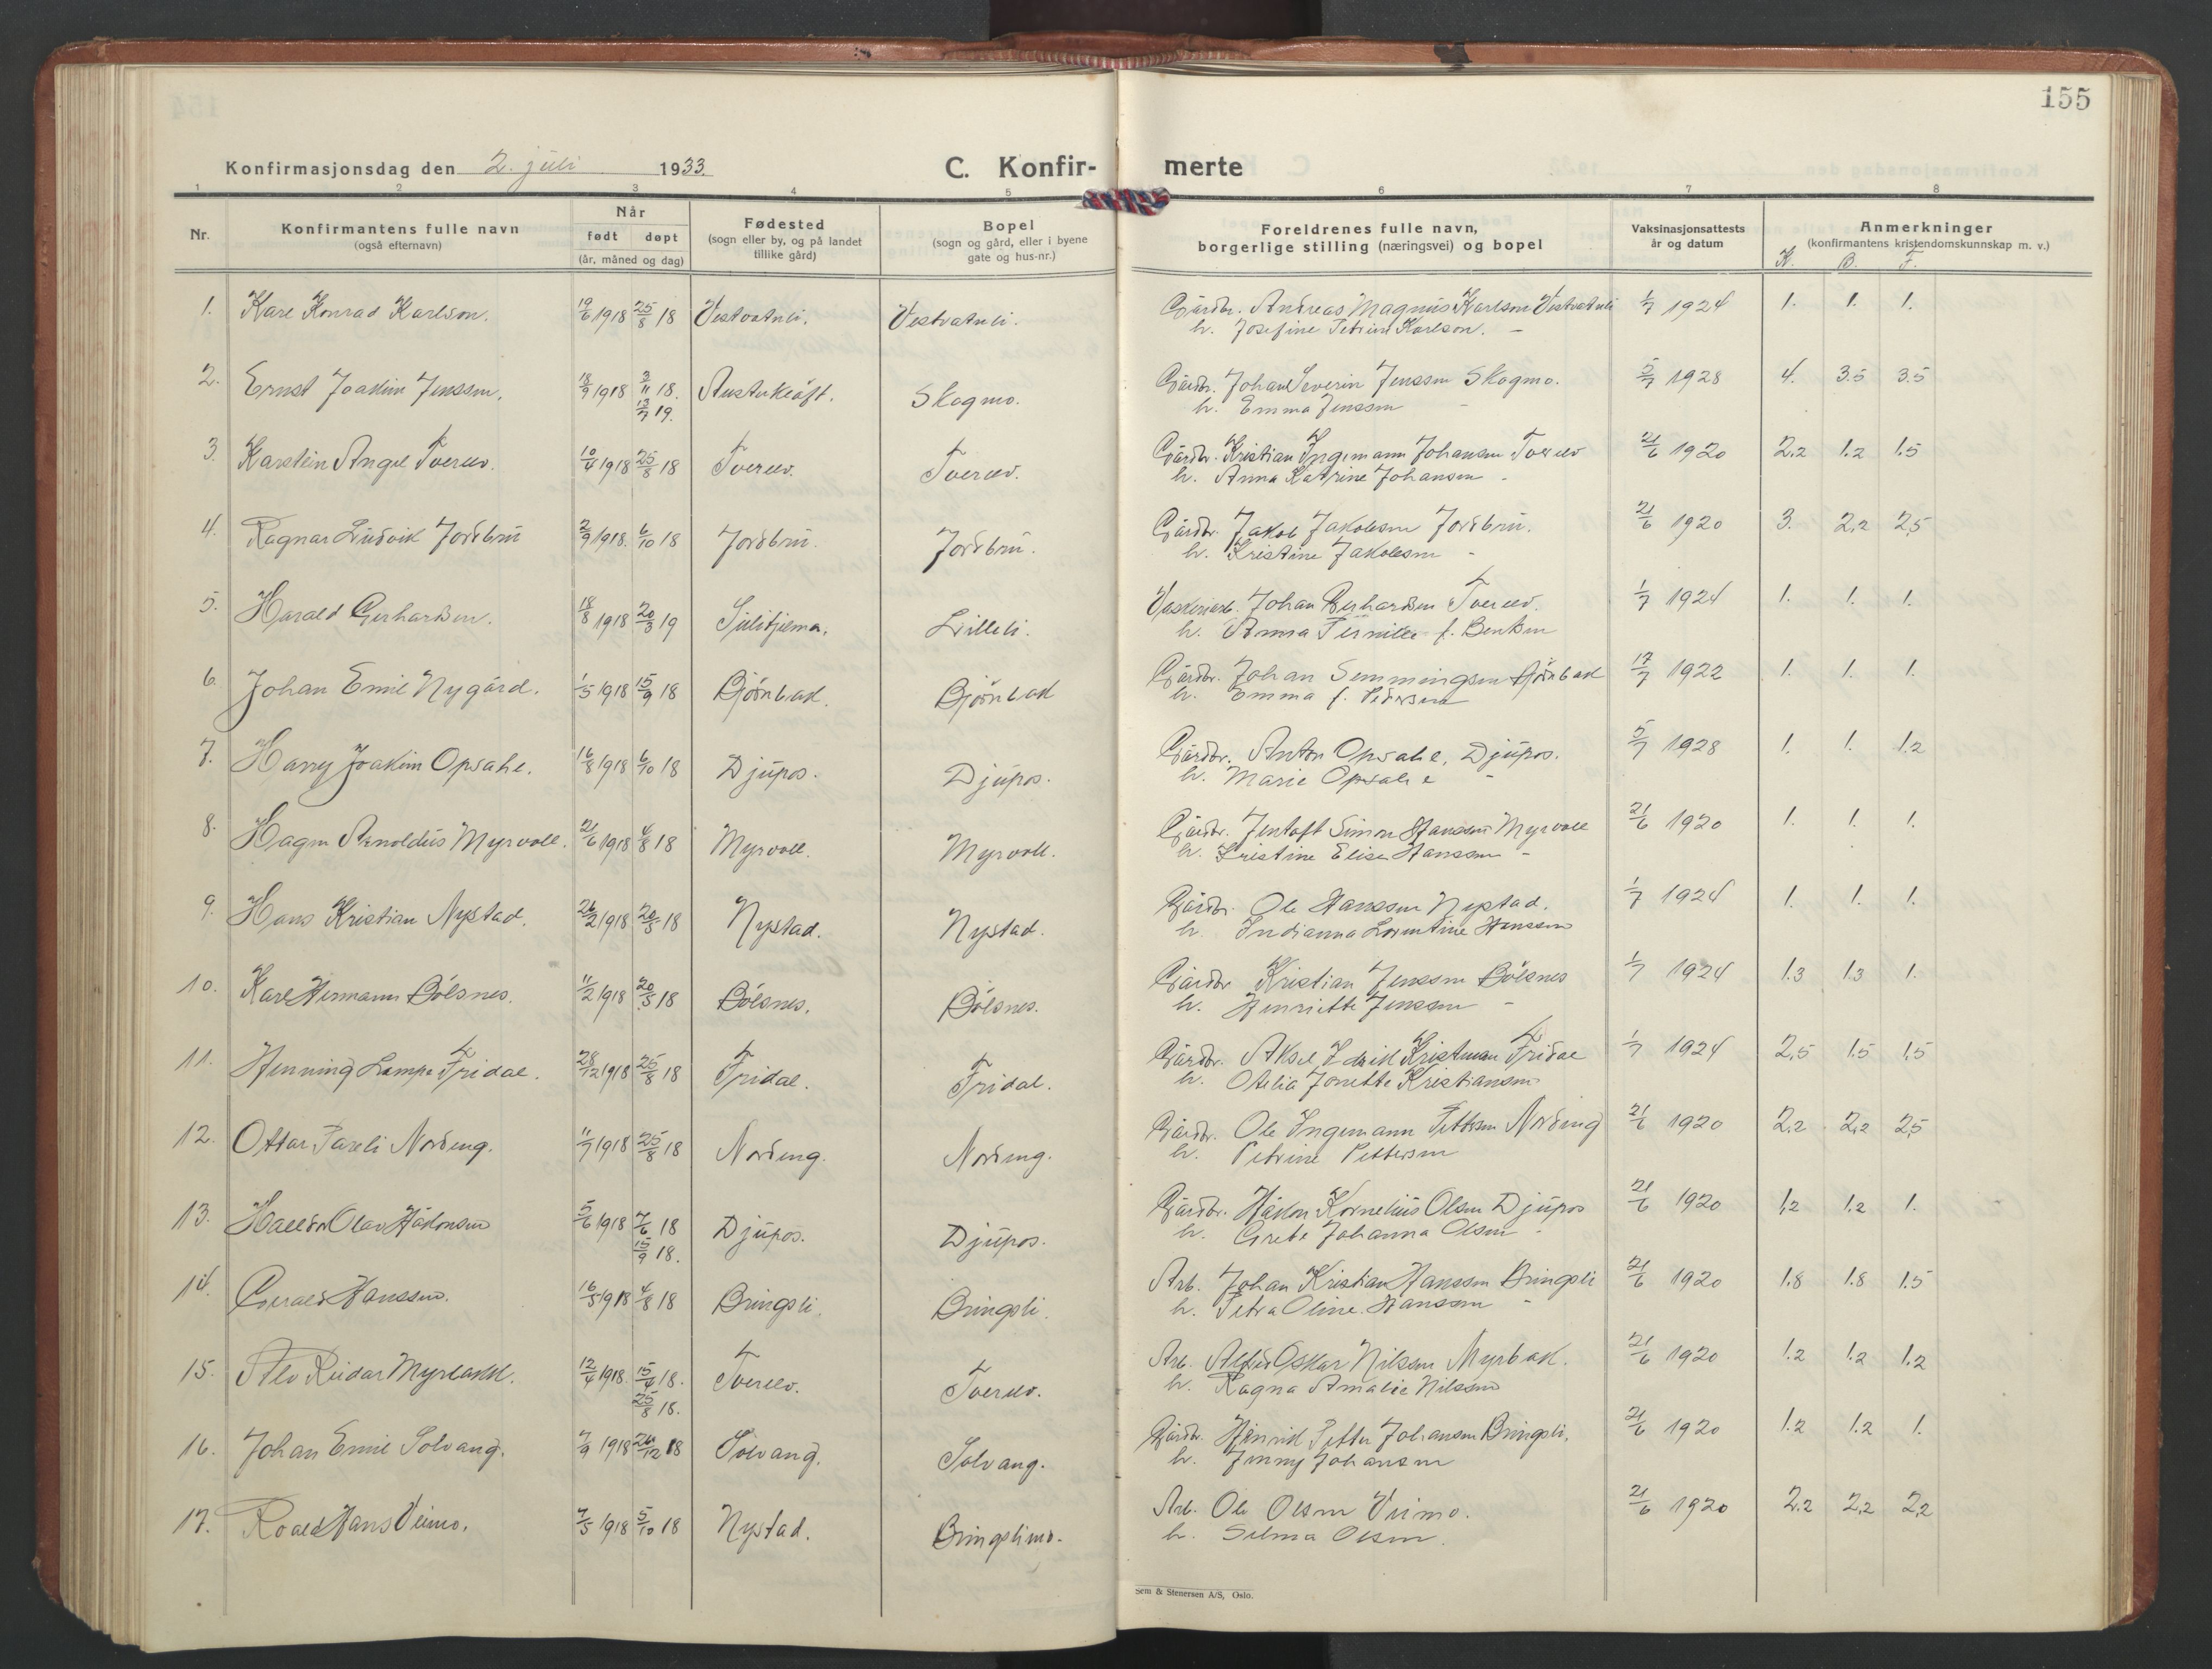 155
Konfirmasjonsdag den 2. juli 1933.
C. Konfir-
merte
1 2 3 4 5 6 7 8
Nr.
Konfirmantens fulle navn
(også efternavn)
Når
født døpt
(år, måned og dag)
Fødested
(sogn eller by, og på landet
tillike gård)
Bopel
(sogn og gård, eller i byene
gate og hus-nr.)
Foreldrenes fulle navn,
borgerlige stilling (næringsvei) og bopel
Vaksinasjonsattests
år og datum
Anmerkninger
(konfirmantens kristendomskunnskap m. v.)
K. B. F.
1. Kare Konrad Karlson. 19/6 1918 25/8 18 Vestvatnli. Vestvatnli. Gårdbr. Andreas Magnus Karlson Vestvatnli 1/7 1924 1. 1. 1.
h. Josefine Petrine Karlson. -
2. Ernst Joakim Jenssen. 18/9 1918 3/11 18. Skogmo. Gårdbr. Johan Severin Jenssen Skogmo. 5/7 1928 4. 3.5 3.5
13/7 19. h. Emma Jenssen -
3. Karstein Angel Tverelv. 10/4 1918 25/8 18 Tverelv. Tverelv. Gårdbr. Kristian Ingemann Johansen Tverelv 21/6 1920 2.2 1.2 1.5
h. Anna Katrine Johansen -
4. Ragnar Ludvik Jordbru 2/9 1918. 6/10 18 Jordbru. Jordbru. Gårdbr. Jakob Jakobsen Jordbru. 21/6 1920 3. 2.2 2.5
h. Kristine Jakobsen -
5. Harald Gerhardsen. 18/8 1918 20/3 19 Sulitjelma. Lilleli. Johan Gerhardsen Tverelv. 1/7 1924 1. 1. 1.
h. Anna Pernille f. Bentsen
6. Johan Emil Nygård. 1/5 1918 15/9 18 Bjørnbak. Bjørnbak Gårdbr. Johan Semmingsen Bjørnbak 17/7 1922 1. 1. 1.
h. Emma f. Pedersen
7. Harry Joakim Opsahl. 16/8 1918 6/10 18 Djupos. Djupos. Gårdbr. Anton Opsahl, Djupos. 5/7 1928 1. 1. 1.2
h. Marie Opsahl -
8. Hagen Arnoldus Myrvoll. 21/6 1918 4/8 18 Myrvoll. Myrvoll. Gårdbr. Jentoft Simon Hanssen Myrvoll 21/6 1920 1. 1. 1.
h. Kristine Elise Hanssen -
9. Hans Kristian Nystad. 26/2 1918 20/5 18 Nystad. Nystad. Gårdbr. Ole Hanssen Nystad. 1/7 1924 1. 1. 1.
h. Indianna Lorentine Hanssen
10. Karl Hermann Bölsnes. 11/2 1918 20/5 18 Bölsnes. Bölsnes. Gårdbr Kristian Jenssen Bölsnes 1/7 1924 1.3 1.3 1.
h. Henriette Jenssen -
11. Henning Lampe Fridal. 28/12 1918 25/8 18 Fridal. Fridal. Gårdbr. Aksel Edvik Kristensen Fridal 1/7 1924 2,5 1.5 1,5
h. Otelia Jonette Kristiansen
12. Ottar Pareli Nordeng. 11/7 1918 25/8 18 Nordeng. Nordeng. Gårdbr. Ole Ingemann Pettersen Nordeng 21/6 1920 2.2 2.2 2,5
h. Petrine Pettersen
13. Halldor Olav Håkonsen 5/6 1918 7/6 18 Djupos. Djupos. Gårdbr. Håkon Kornelius Olsen Djupos 21/6 1920 1,2 1.2 1.
15/9 18. h. Grete Johanna Olsen -
14. Harald Hanssen. 16/5 1918 4/8 18 Bringsli. Bringsli. Arb. Johan Kristian Hanssen Bringsli 21/6 1920 1.8 1.8 1.5
h. Petra Oline Hanssen -
15. Alv Reidar Myrbakk. 12/4 1918. 15/4 18. Tverelv. Tverelv. Arb. Alfred Oskar Nilssen Myrbak. 21/6 1920 1.2 1.2 1.2
25/8 18. h. Ragna Amalie Nilssen
16. Johan Emil Solvang. 7/9 1918 26/12 18 Solvang. Solvang. Gårdbr. Henrik Petter Johansen Bringsli. 21/6 1920 1.2 1.2 1.
h. Jenny Johansen
17. Roald Hans Veimo. 7/5 1918 5/10 18 Nystad. Bringslimo. Arb. Ole Olsen Veimo. 21/6 1920 2.2 2.2 2,2
h. Selma Olsen.
Sem & Stenersen A/S, Oslo.